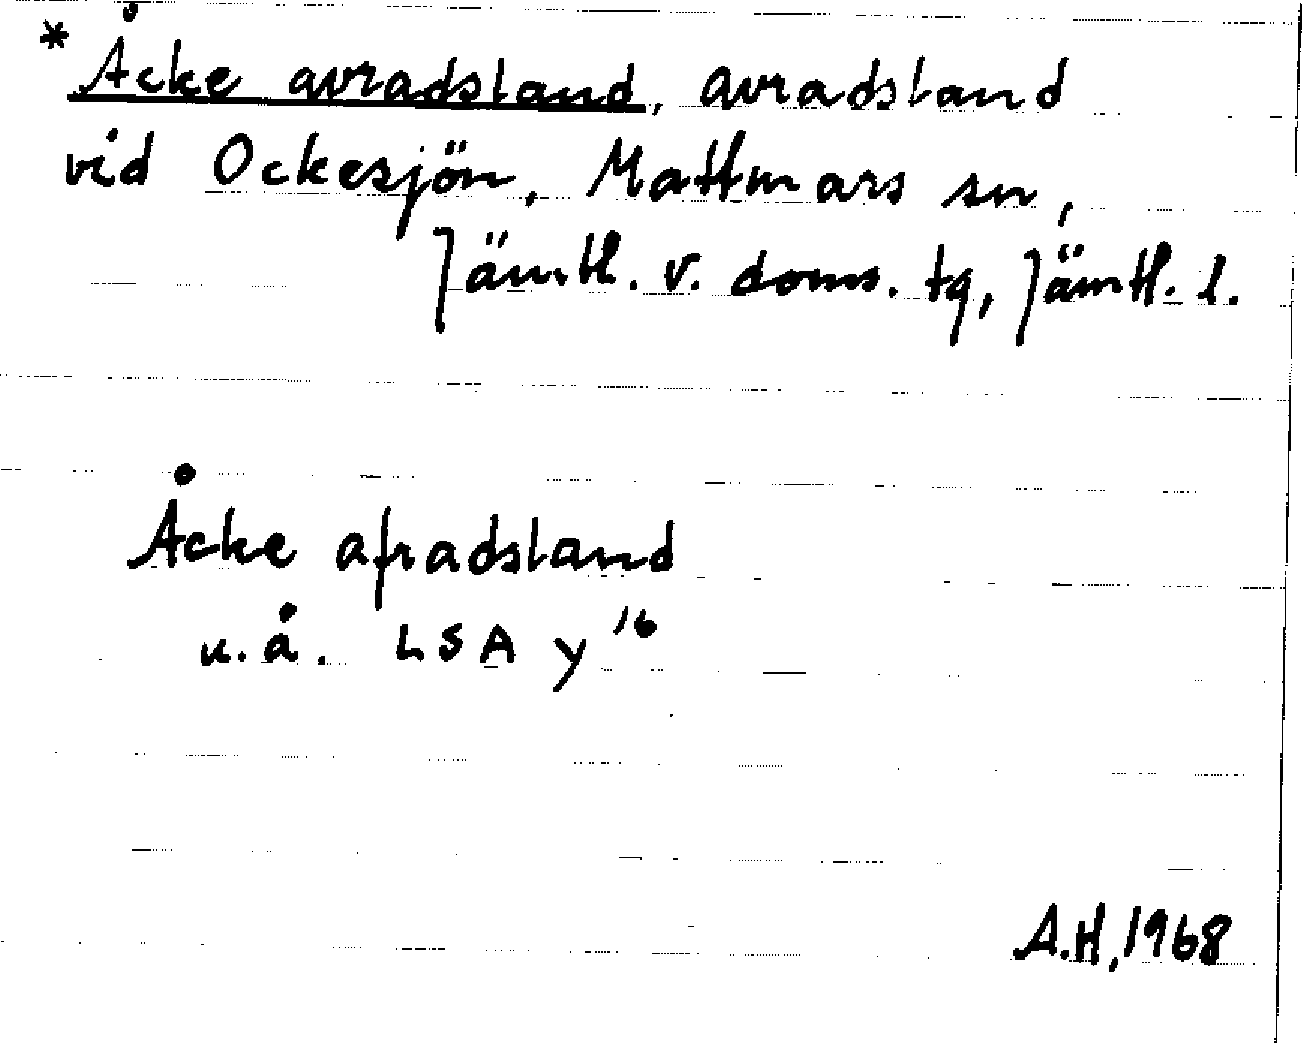 * Åcke avradsland, avradsland
vid Ockesjön, Mattmars sn,
Jämtl. v. doms. tg, Jämtl. l.
Åcke afradsland
u.å. LSA y 16
A.H, 1968